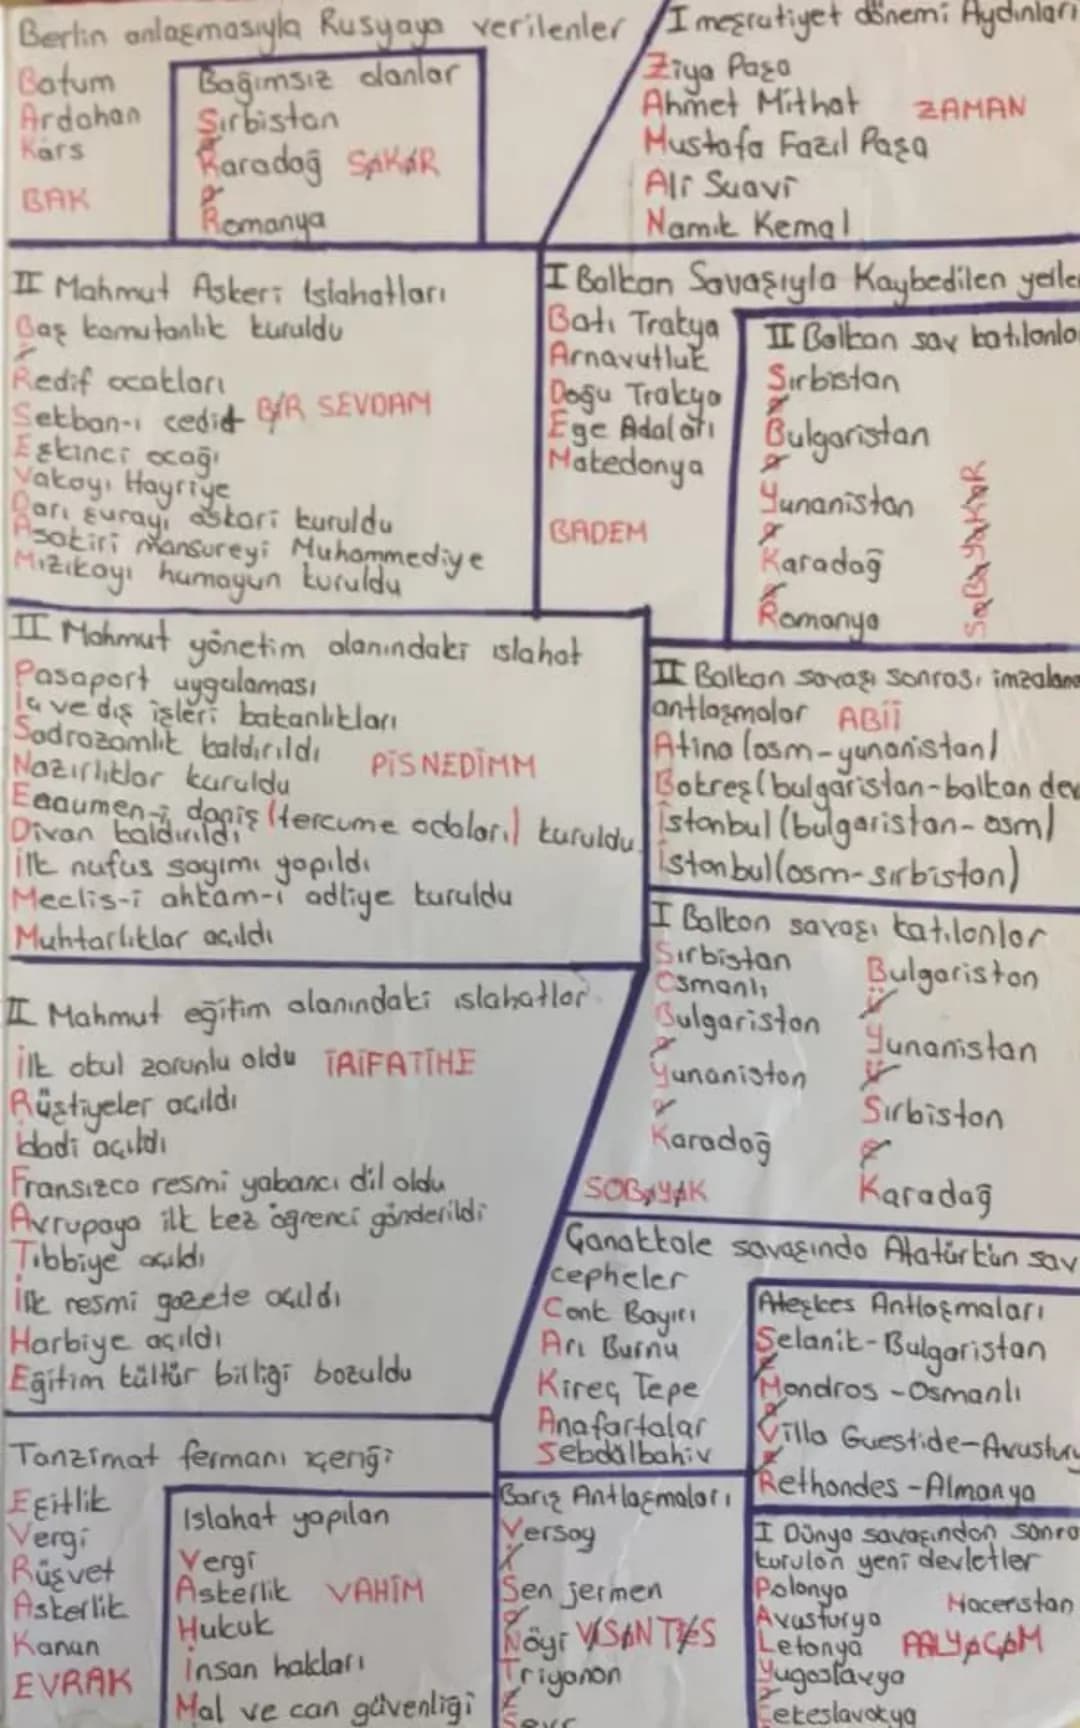 Berlin anlaşmasıyla Rusyaya verilenler
Batum
Ardahan
Kars
BAK
Bağımsız olanlar
Sırbistan
a
Karadağ SAKAR
a
Romanya
I meşrutiyet dönemi Aydınları
Ziya Paşa
Ahmet Mithat
ZAMAN
Mustafa Fazıl Paşa
Ali Suavi
Namık Kemal
II Mahmut Askeri Islahatları
Baş komutanlık kuruldu
i
Redif ocakları
Sekban-ı cedit BİR SEVDAM
Eşkinci ocağı
Vakayı Hayriye
Darı şurayı askari kuruldu
Asakiri mansureyi Muhammediye
Mızıkayı humayun kuruldu
I Balkan Savaşıyla Kaybedilen yerle
Batı Trakya
Arnavutluk
Doğu Trakya
Ege Adaları
Makedonya
BADEM
II Balkan sav katılanla
Sırbistan
a
Bulgaristan
a
Yunanistan
a
Karadağ
a
Romanya
SaBaYaKaR
II Mahmut yönetim alanındaki ıslahat
Pasaport uygulaması
iç ve dış işleri bakanlıkları
Sadrazamlık kaldırıldı
Nazırlıklar kuruldu
PİSNEDİMM
Encumen-i daniş (tercume odaları) kuruldu
Divan kaldırıldı
ilk nufus sayımı yapıldı
Meclis-i ahkam-ı adliye kuruldu
Muhtarlıklar açıldı
II Balkan savaşı sonrası imzalana
antlaşmalar ABİİ
Atina (osm-yunanistan)
Bokreş (bulgaristan-balkan dev
istanbul (bulgaristan-osm)
istanbul (osm-sırbistan)
I Balkan savaşı katılanlar
Sırbistan
Osmanlı
Bulgaristan
a
Yunanistan
a
Karadağ
SOBAYAK
Bulgaristan
ü
Yunanistan
ü
Sırbistan
a
Karadağ
II Mahmut eğitim alanındaki ıslahatlar
ilk okul zorunlu oldu İRİFATİHE
Rüştiyeler açıldı
idadi açıldı
Fransızca resmi yabancı dil oldu
Avrupaya ilk kez öğrenci gönderildi
Tıbbiye açıldı
ilk resmi gazete açıldı
Harbiye açıldı
Eğitim kültür birliği bozuldu
Çanakkale savaşında Atatürkün sav
cepheler
Conk Bayırı
Arı Burnu
Kireç Tepe
Anafartalar
Sebdülbahiv
Ateşkes Antlaşmaları
Selanik-Bulgaristan
Mondros-Osmanlı
Villa Guestide-Avustury
Rethondes-Almanya
Tanzimat fermanı içeriği
Eşitlik
Vergi
Rüşvet
Askerlik
Kanun
EVRAK
Islahat yapılan
Vergi
Askerlik VAHİM
Hukuk
insan hakları
Mal ve can güvenliği
Barış Antlaşmaları
Versay
i
Sen jermen
a
Nöyi VİSANTES
Triyanon
e
Sevr
I Dünya savaşından sonra
kurulan yeni devletler
Polonya
Macaristan
Avusturya
Letonya PALYAÇAM
Yugoslavya
a
Çekeslavakya